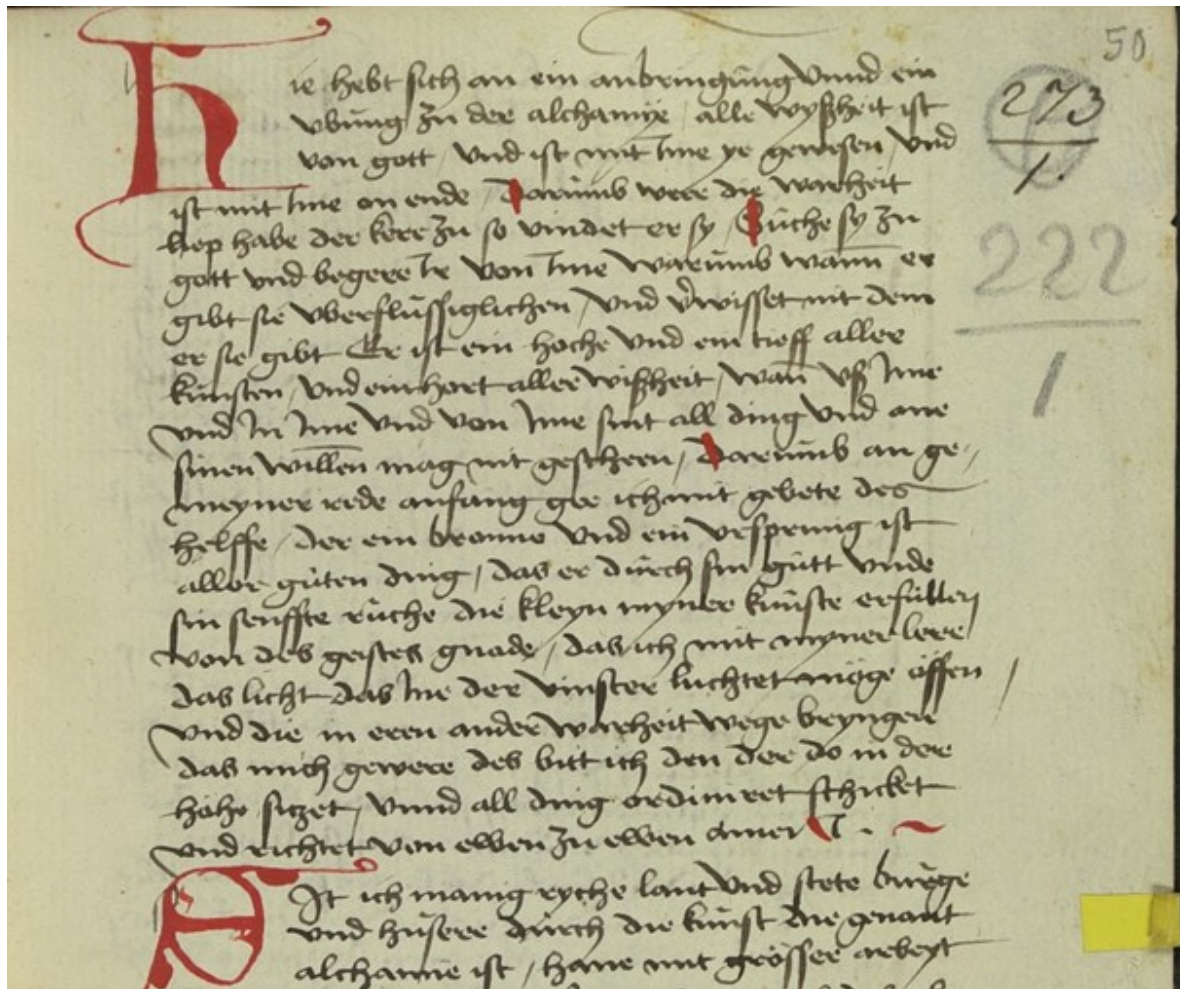 50
273
1.
222
1
Hie hebt sich an ein anbringung Vnnd ein
vbung zu der alchamye / alle wyßheit ist
von gott / vnd ist mit Ime ye gewesen / vnd
ist mit Ime on ende / Darumb were die warheit
liep habe der kere zu so vindet er sy / Suche sy zu
gott vnd begere Ir von Ime warumb wann er
gibt sie vberflussiglichen / vnd v̄wisset nit dem
er sie gibt Er ist ein hoche vnd ein tieff aller
kunsten / vnd ein hort aller wißheit / wan̄ vß Ime
vnd In Ime vnd von Ime sint all ding vnd one
sinen willen mag nit gescheen / Darumb an ge-
meyner rede anfang gee ich mit gebete des
helffe / der ein bronne vnd ein vrsprung ist
aller guten ding / das er durch sin gutt vnde
sin senffte ruche die kleyn myner kunste erfullen
von des geistes gnade / das ich mit myner lere
das licht das Ine der vinster luchtet moge offen
vnd die in eren ander warheit wege bryngen
das mich gewere des bitt ich den der do in der
hohe siczet / vnnd all ding ordinieret schicket
vnd richtet von ewen zu ewen amen
Sit ich manig ryche lant vnd stete burge
vnd husere durch die kunst die genant
alchamie ist / hane mit grosser arbeyt